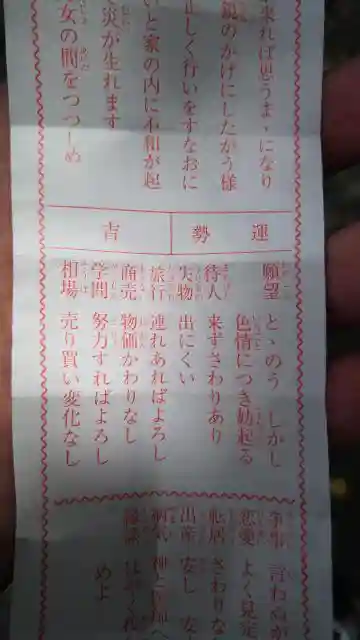 来れば思うまゝになり
鏡のかげにしたがう様
正しく行いをすなおに
いと家の内に不和が起
災が生れます
女の間をつつしめ
運勢
吉
願望 とゝのう しかし
色情につき妨起る
待人 来ずさわりあり
失物 出にくい
旅行 連れあればよろし
商売 物価かわりなし
学問 努力すればよろし
相場 売り買い変化なし
争事 言わぬ
恋愛 よく見定
転居 さわりな
出産 安し
病気 神と医師へ
縁談
めよ